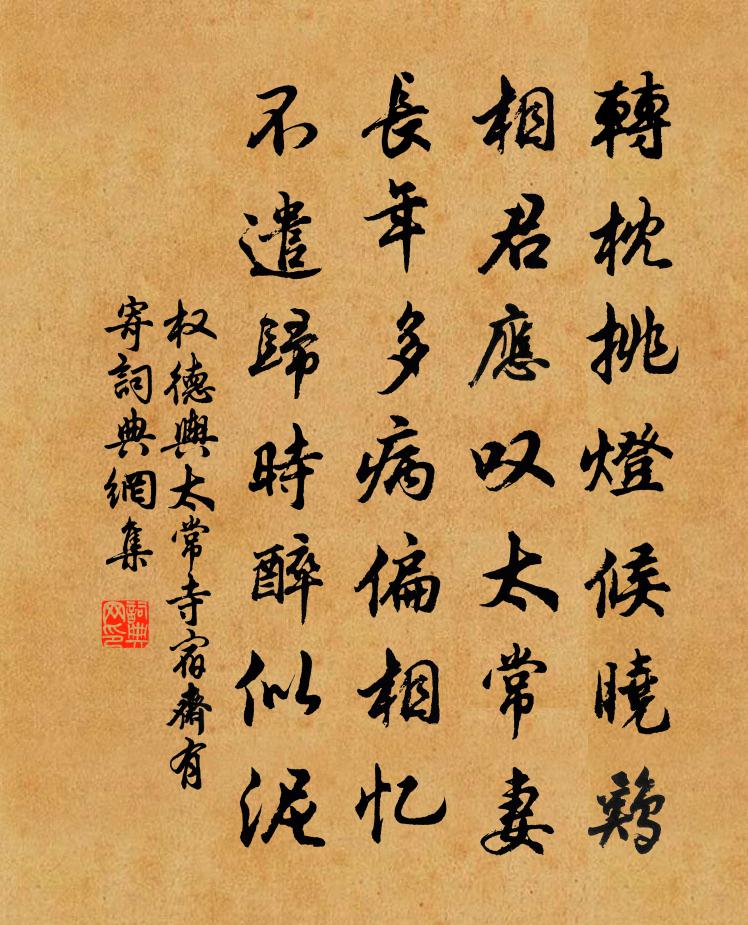 轉枕挑燈候曉鷄
相君應叹太常妻
長年多病偏相忆
不遣歸時醉似泥
权德輿太常寺宿齋有
寄詞典網集
詞典網印